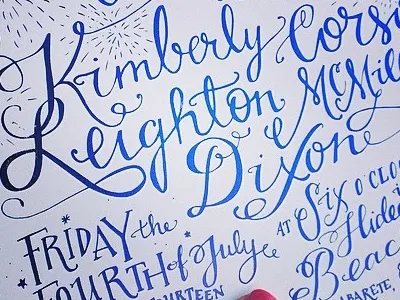 Kimberly Cors
Leighton McMill
Dixon
FRIDAY the
FOURTH of July
URTEEN
AT Six O'CLO
Hide
Beac
BARETE,